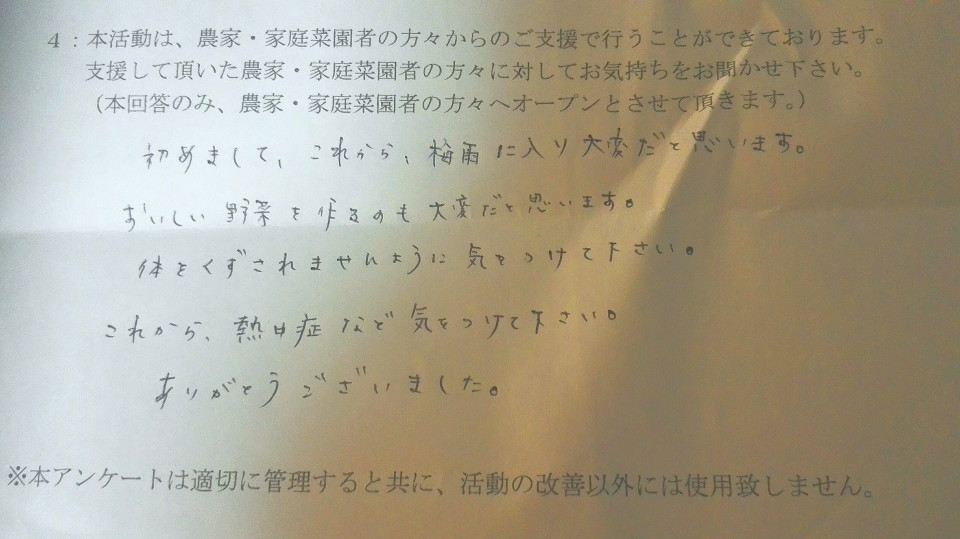 4：本活動は、農家・家庭菜園者の方々からのご支援で行うことができております。
支援して頂いた農家・家庭菜園者の方々に対してお気持ちをお聞かせ下さい。
（本回答のみ、農家・家庭菜園者の方々へオープンとさせて頂きます。）
初めまして、これから、梅雨に入り大変だと思います。
おいしい野菜を作るのも大変だと思います。
体をくずされませんように気をつけて下さい。
これから、熱中症など気をつけて下さい。
ありがとうございました。
※本アンケートは適切に管理すると共に、活動の改善以外には使用致しません。